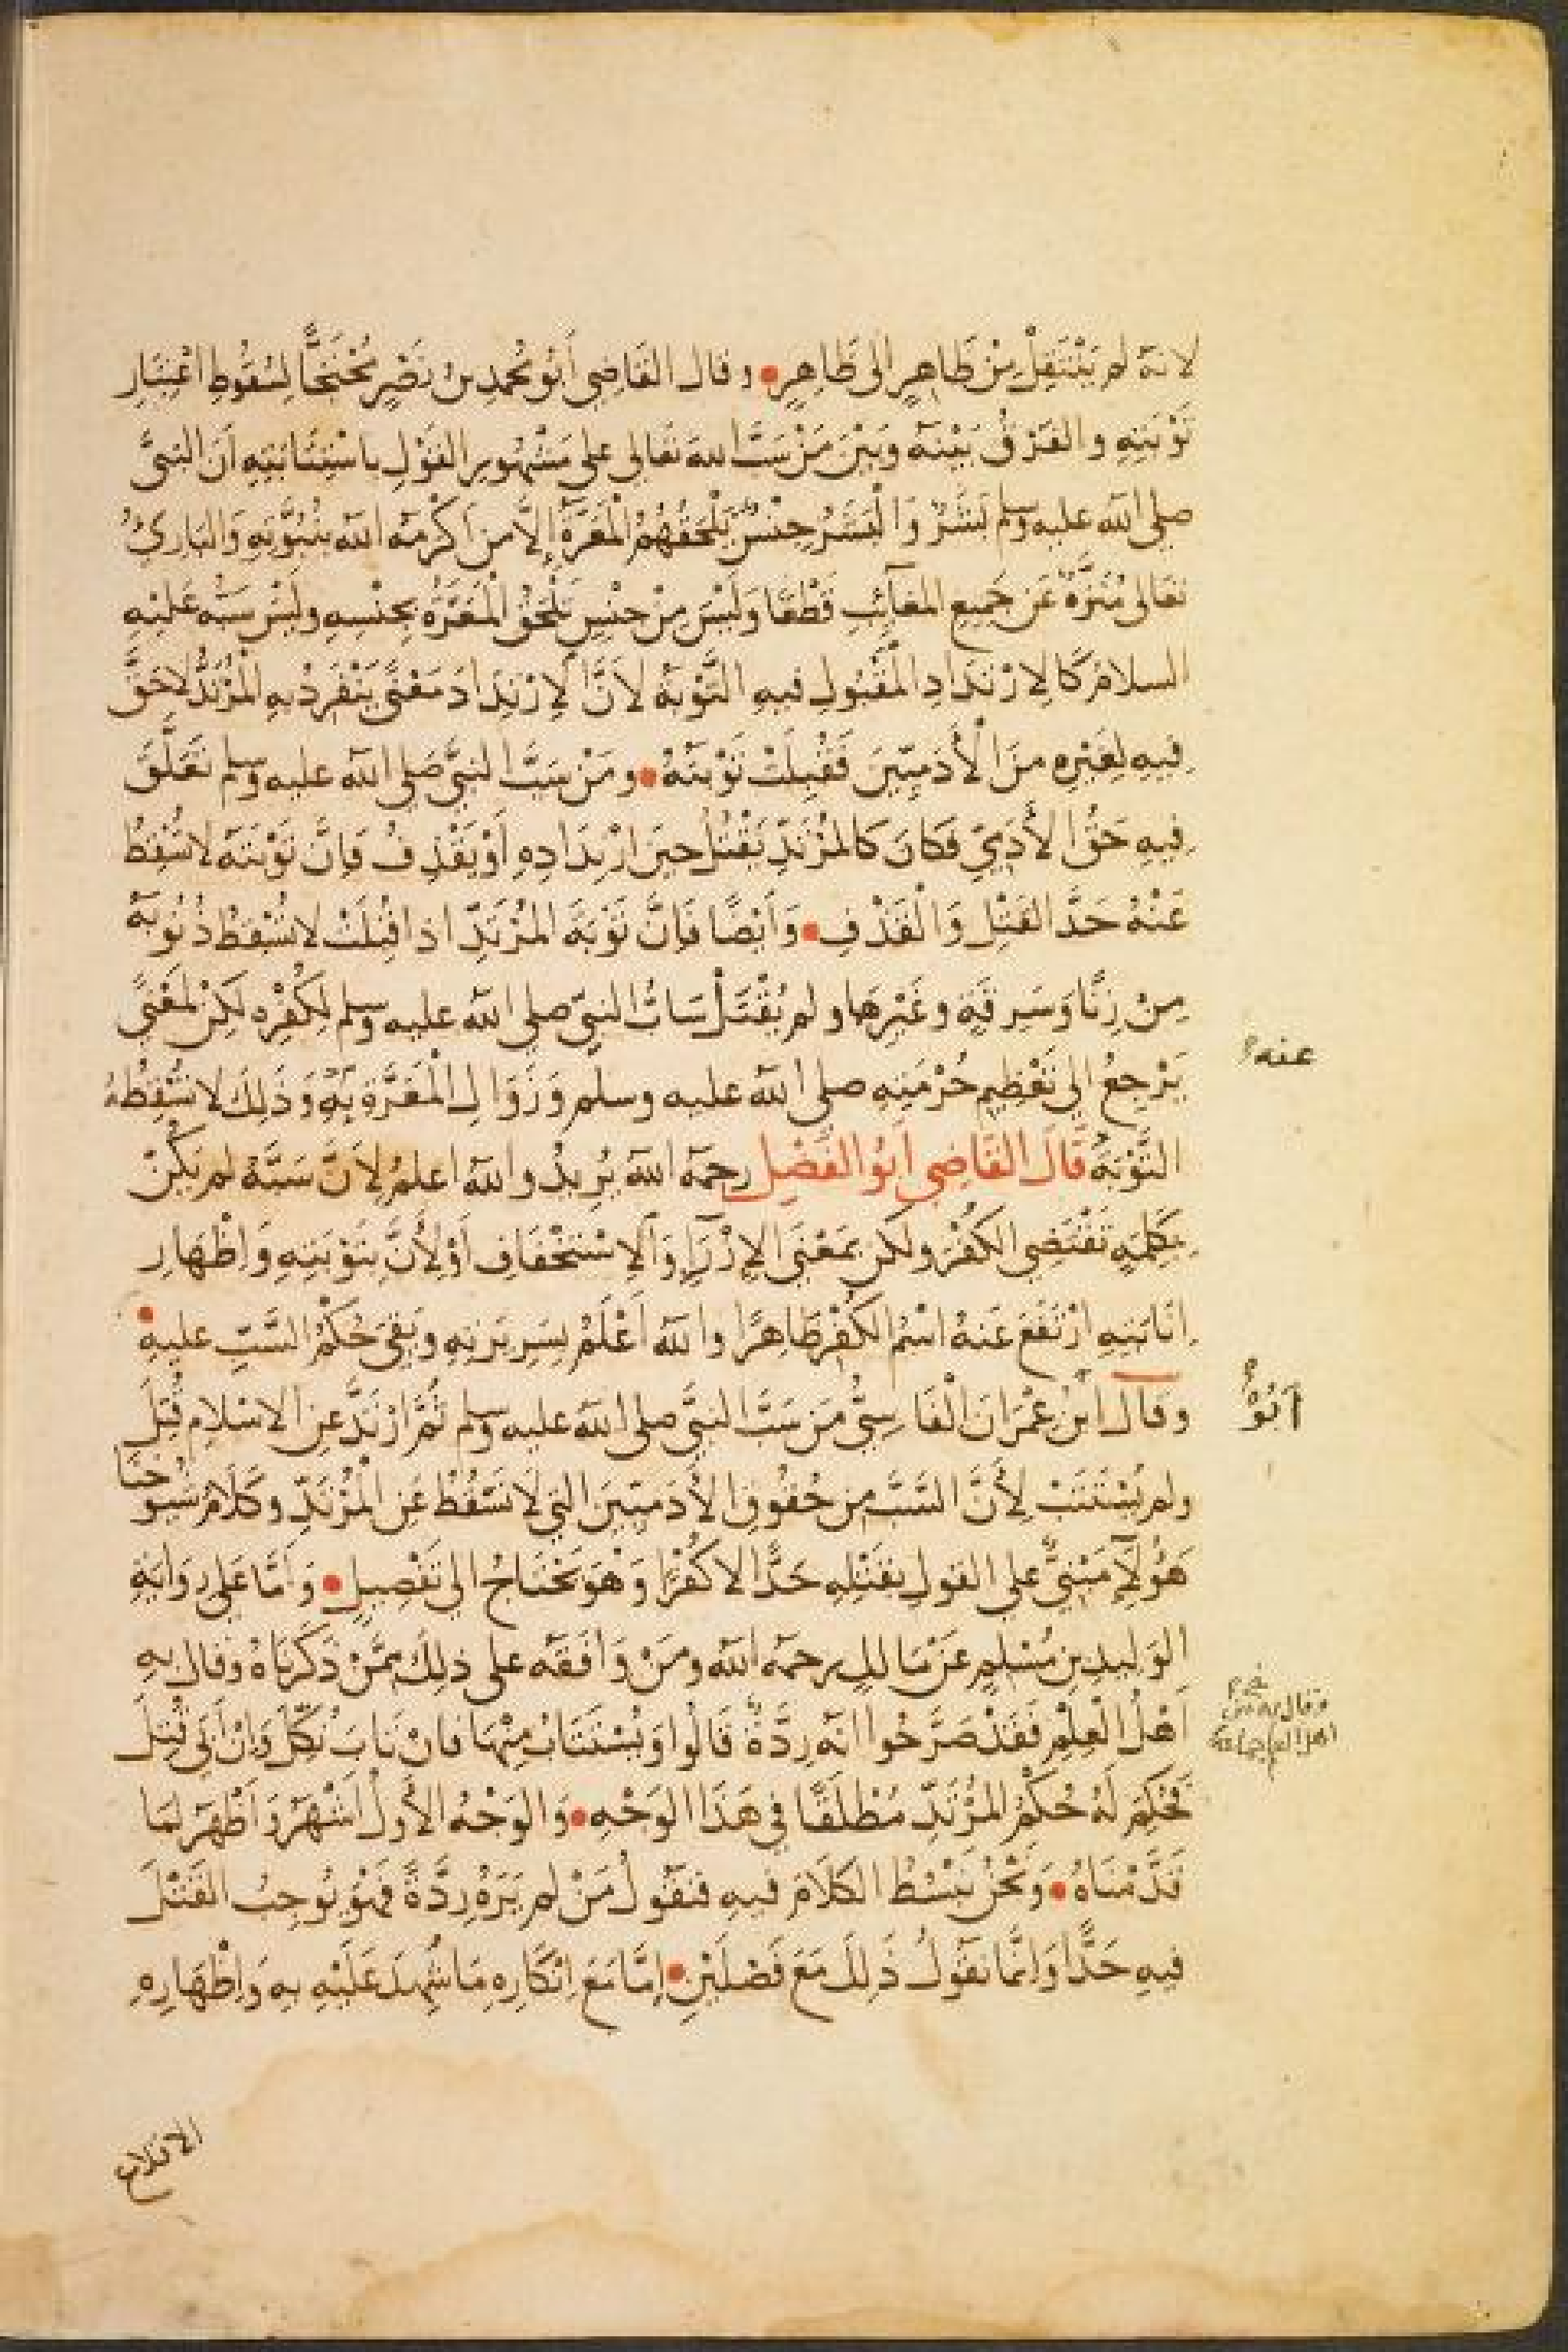 لانهُ لم يَنْتَقِلْ مِنْ ظَاهِرٍ الى ظَاهِرٍ • وقال القَاضِي أَبُو مُحمدِ بنُ نَصْرٍ مُحْتَجًّا لِسُقُوطِ اعْتِبَارِ
تَوْبَتِهِ والفَرْقُ بَيْنَهُ وَبَيْنَ مَنْ سَبَّ اللهَ تَعَالى على مَشْهُورِ القَوْلِ باسْتِتَابَتِهِ أَنَّ النبىَّ
صلى الله عليه وسلم بَشَرٌ وَالْبَشَرُ جِنْسٌ يَلْحَقُهُمُ الْمَعَرَّةُ إِلَّا من أَكْرَمَهُ اللهُ بِنُبُوَّتِهِ وَالبَارِئُ
تعَالى مُنَزَّهٌ عَن جَمِيعِ المَعَآئِبِ قَطْعًا وَلَيْسَ مِنْ جِنْسٍ يَلْحَقُ الْمَعَرَّةُ بِجِنْسِهِ وليْسَ سَبُّه عَليْهِ
السلامُ كَالِارْتدَادِ الْمَقْبُولِ فيهِ التَّوْبَةُ لأَنَّ الِارْتِدَادَ مَعْنًى يَنْفَرِدُ بِهِ الْمُرْتَدُّ لاحَقَّ
فيهِ لِغَيْرِهِ مِنَ الْأَدَمِيّينَ فَقُبِلَتْ تَوْبَتُهُ • ومَنْ سَبَّ النبىَّ صَلى الله عليه وسلم تَعَلَّقَ
فِيهِ حَقُّ الْأَدَمِيّ فكَانَ كَالمُرْتَدِّ يَقْتُلُ حينَ ارْتِدَادِهِ أَوْ يَقْذِفُ فَإِنَّ تَوْبَتَهُ لا تُسْقِطُ
عَنْهُ حَدَّ القَتْلِ وَالْقَذْفِ • وَأَيْضًا فَإِنَّ تَوْبَةَ المُرْتَدِّ اذا قُبِلَتْ لا تُسْقِطْ ذُنُوبَهُ
مِنْ زِنًا وَسَرِقَةٍ وغَيْرِهَا ولم يُقْتَلْ سَابُّ النبىّ صلى الله عليه وسلم لِكُفْرِه لَكِنْ لمعْنًى
يَرْجِعُ الى تَعْظِيمِ حُرْمَتِهِ صلى الله عليه وسلم وَزَوَالِ الْمَعَرَّةِ بِهِ وَذَلِكَ لا تُسْقِطُهُ
التَّوْبَةُ قَالَ القَاضِي أَبُو الفَضْلِ رحمَهُ اللهُ يُرِيدُ واللهُ اعلمُ لأَنَّ سَبَّهُ لم يَكُنْ
بِكلِمَةٍ تَقْتَضِي الكُفْرَ ولَكن بمَعْنَى الِازْرَآءِ وَالِاسْتخْفَافِ أَوْ لأَنَّ بِتَوْبَتِهِ وَإِظْهَارِ
إِنَابَتِهِ ارْتَفَعَ عَنهُ اسْمُ الكُفْرِ ظَاهِرًا واللهُ أَعْلَمُ بِسَرِيرَتِهِ وبَقىَ حُكْمُ السَّبّ عليهِ •
وقال ابْنُ عِمْرَانَ الْفَاسِيُّ مَن سَبَّ النبىَّ صلى الله عليه وسلم ثُمَّ ارْتَدَّ عنِ الاسْلامِ قُتِلَ
ولم يُسْتَتَبْ لأَنَّ السَّبَّ من حُقُوقِ الْأَدَمِيّينَ التي لَا تَسْقُطُ عَنِ الْمُرْتَدِّ وكَلَامُ شُيُوخِنَا
هَؤُلآءِ مَبْنِيٌّ على القولِ بقَتْلِهِ حَدًّا لا كُفْرًا وَهْوَ يَحْتَاجُ الى تَفْصِيلٍ • وَأَمَّا عَلى رِوَايَةِ
الوَليدِ بنِ مُسْلِمٍ عَنْ مَالِكٍ رحمَهُ اللهُ ومَنْ وَافَقَهُ على ذلِكَ مِمَّنْ ذَكَرْنَاهُ وقال بهِ
أَهْلُ الْعِلْمِ فَقَدْ صَرَّحُوا انَّه رِدَّةٌ قَالُوا وَيُسْتَتَابُ مِنْهَا فَانْ تَابَ نُكِّلَ وَإِنْ أَبَى قُتِلَ
فَحُكِمَ لَهُ بحُكْمِ المُرْتَدِّ مُطْلَقًا في هَذَا الوَجْهِ • وَالوَجْهُ الأَوَّلُ أَشْهَرُ وَأَظْهَرُ لمَا
قَدَّمْنَاهُ • وَنَحْنُ نَبْسُطُ الكَلَامَ فيهِ فنَقُولُ مَنْ لم يَرَهُ رِدَّةً فَهْوَ يُوجِبُ القَتْلَ
فيهِ حَدًّا وَإِنَّمَا نَقُولُ ذَلِكَ مَعَ فَصْلَيْنِ • إِمَّا مَعَ إِنْكَارِهِ مَا شُهِدَ عَلَيْهِ بِهِ وَإِظْهَارِهِ
عنه
أَبُوْ
وقال به من
اهل العلم جماعة
الاقلاع